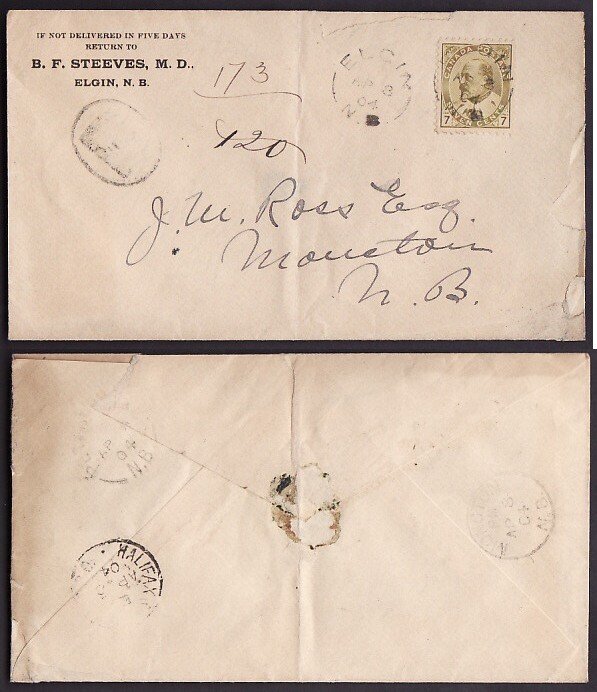 IF NOT DELIVERED IN FIVE DAYS
RETURN TO
B. F. STEEVES, M. D.,
ELGIN, N. B.
173
420
ELGIN
AP 8
04
N.B
CANADA POSTAGE
7 SEVEN CENTS 7
J. M. Ross Esq.
Moncton
N. B.
AP
04
N.B
HALIFAX
AP 8
04
N.B